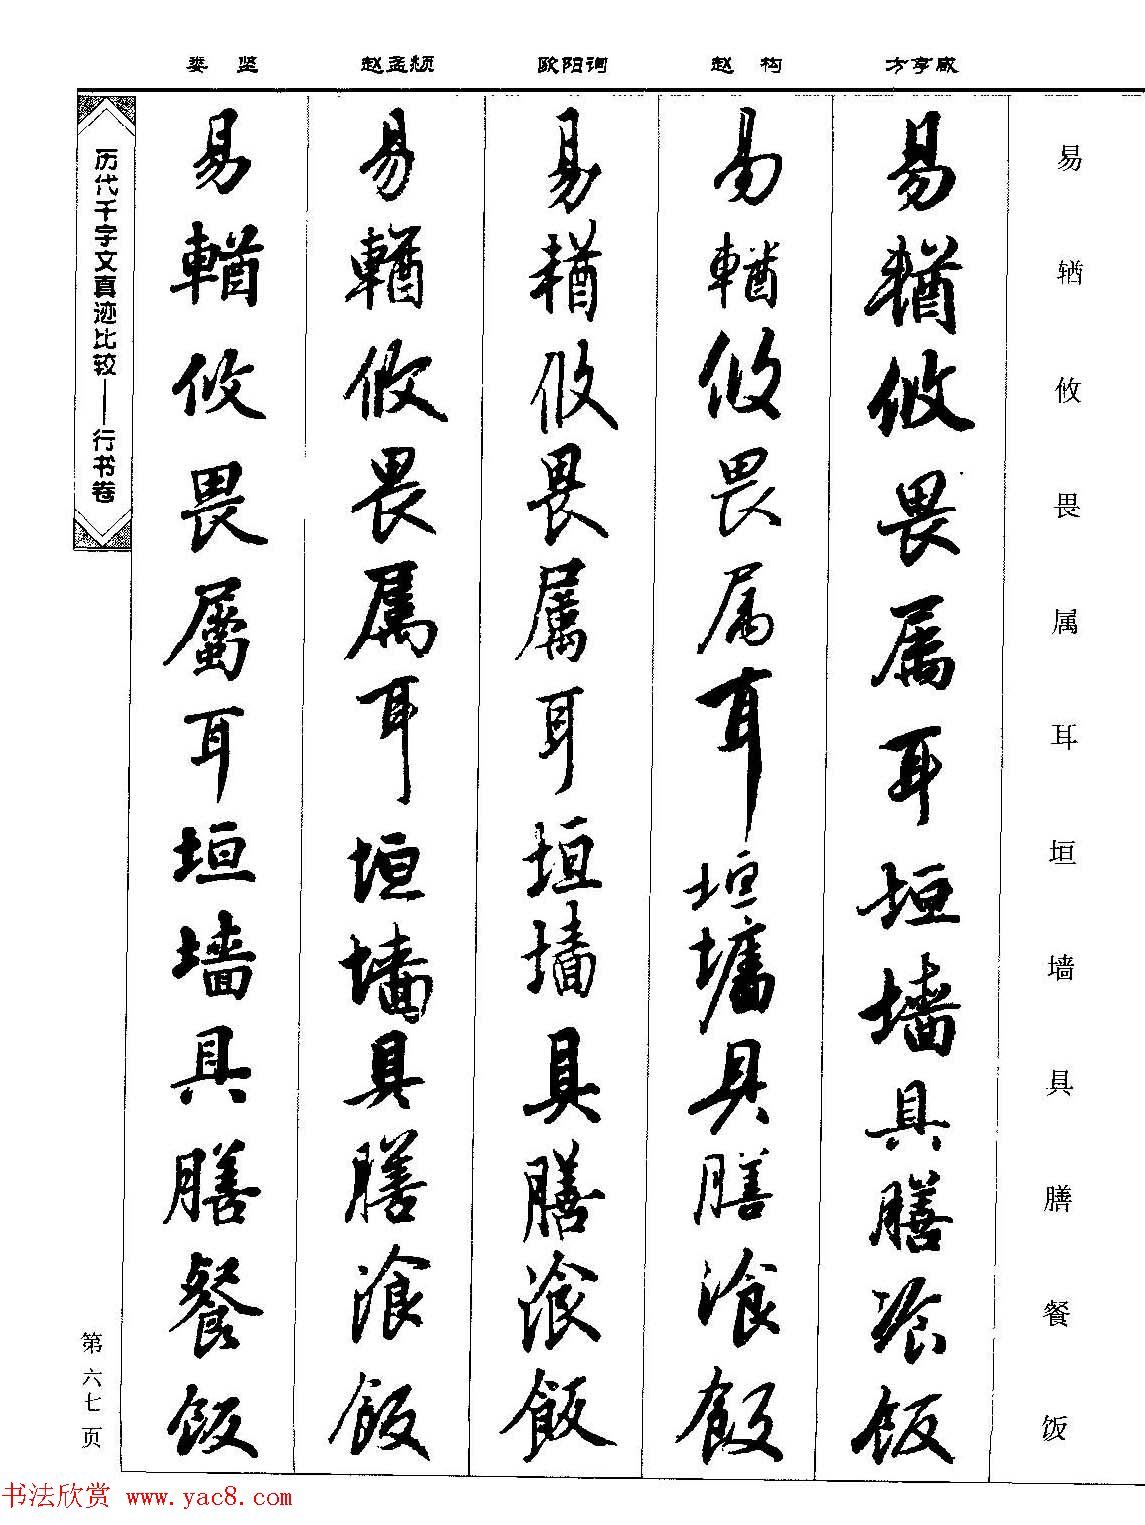 娄 坚 赵孟頫 欧阳询 赵 构 方亨咸
易𬨎攸畏属耳垣墙具膳餐饭
易輶攸畏属耳垣墙具膳湌飯
易輶攸畏属耳垣墙具膳湌飯
易輶攸畏属耳垣墙具膳湌飯
易輶攸畏属耳垣墙具膳湌飯
易輶攸畏屬耳垣墙具膳餐飯
历代千字文真迹比较——行书卷
第六七页
书法欣赏 www.yac8.com